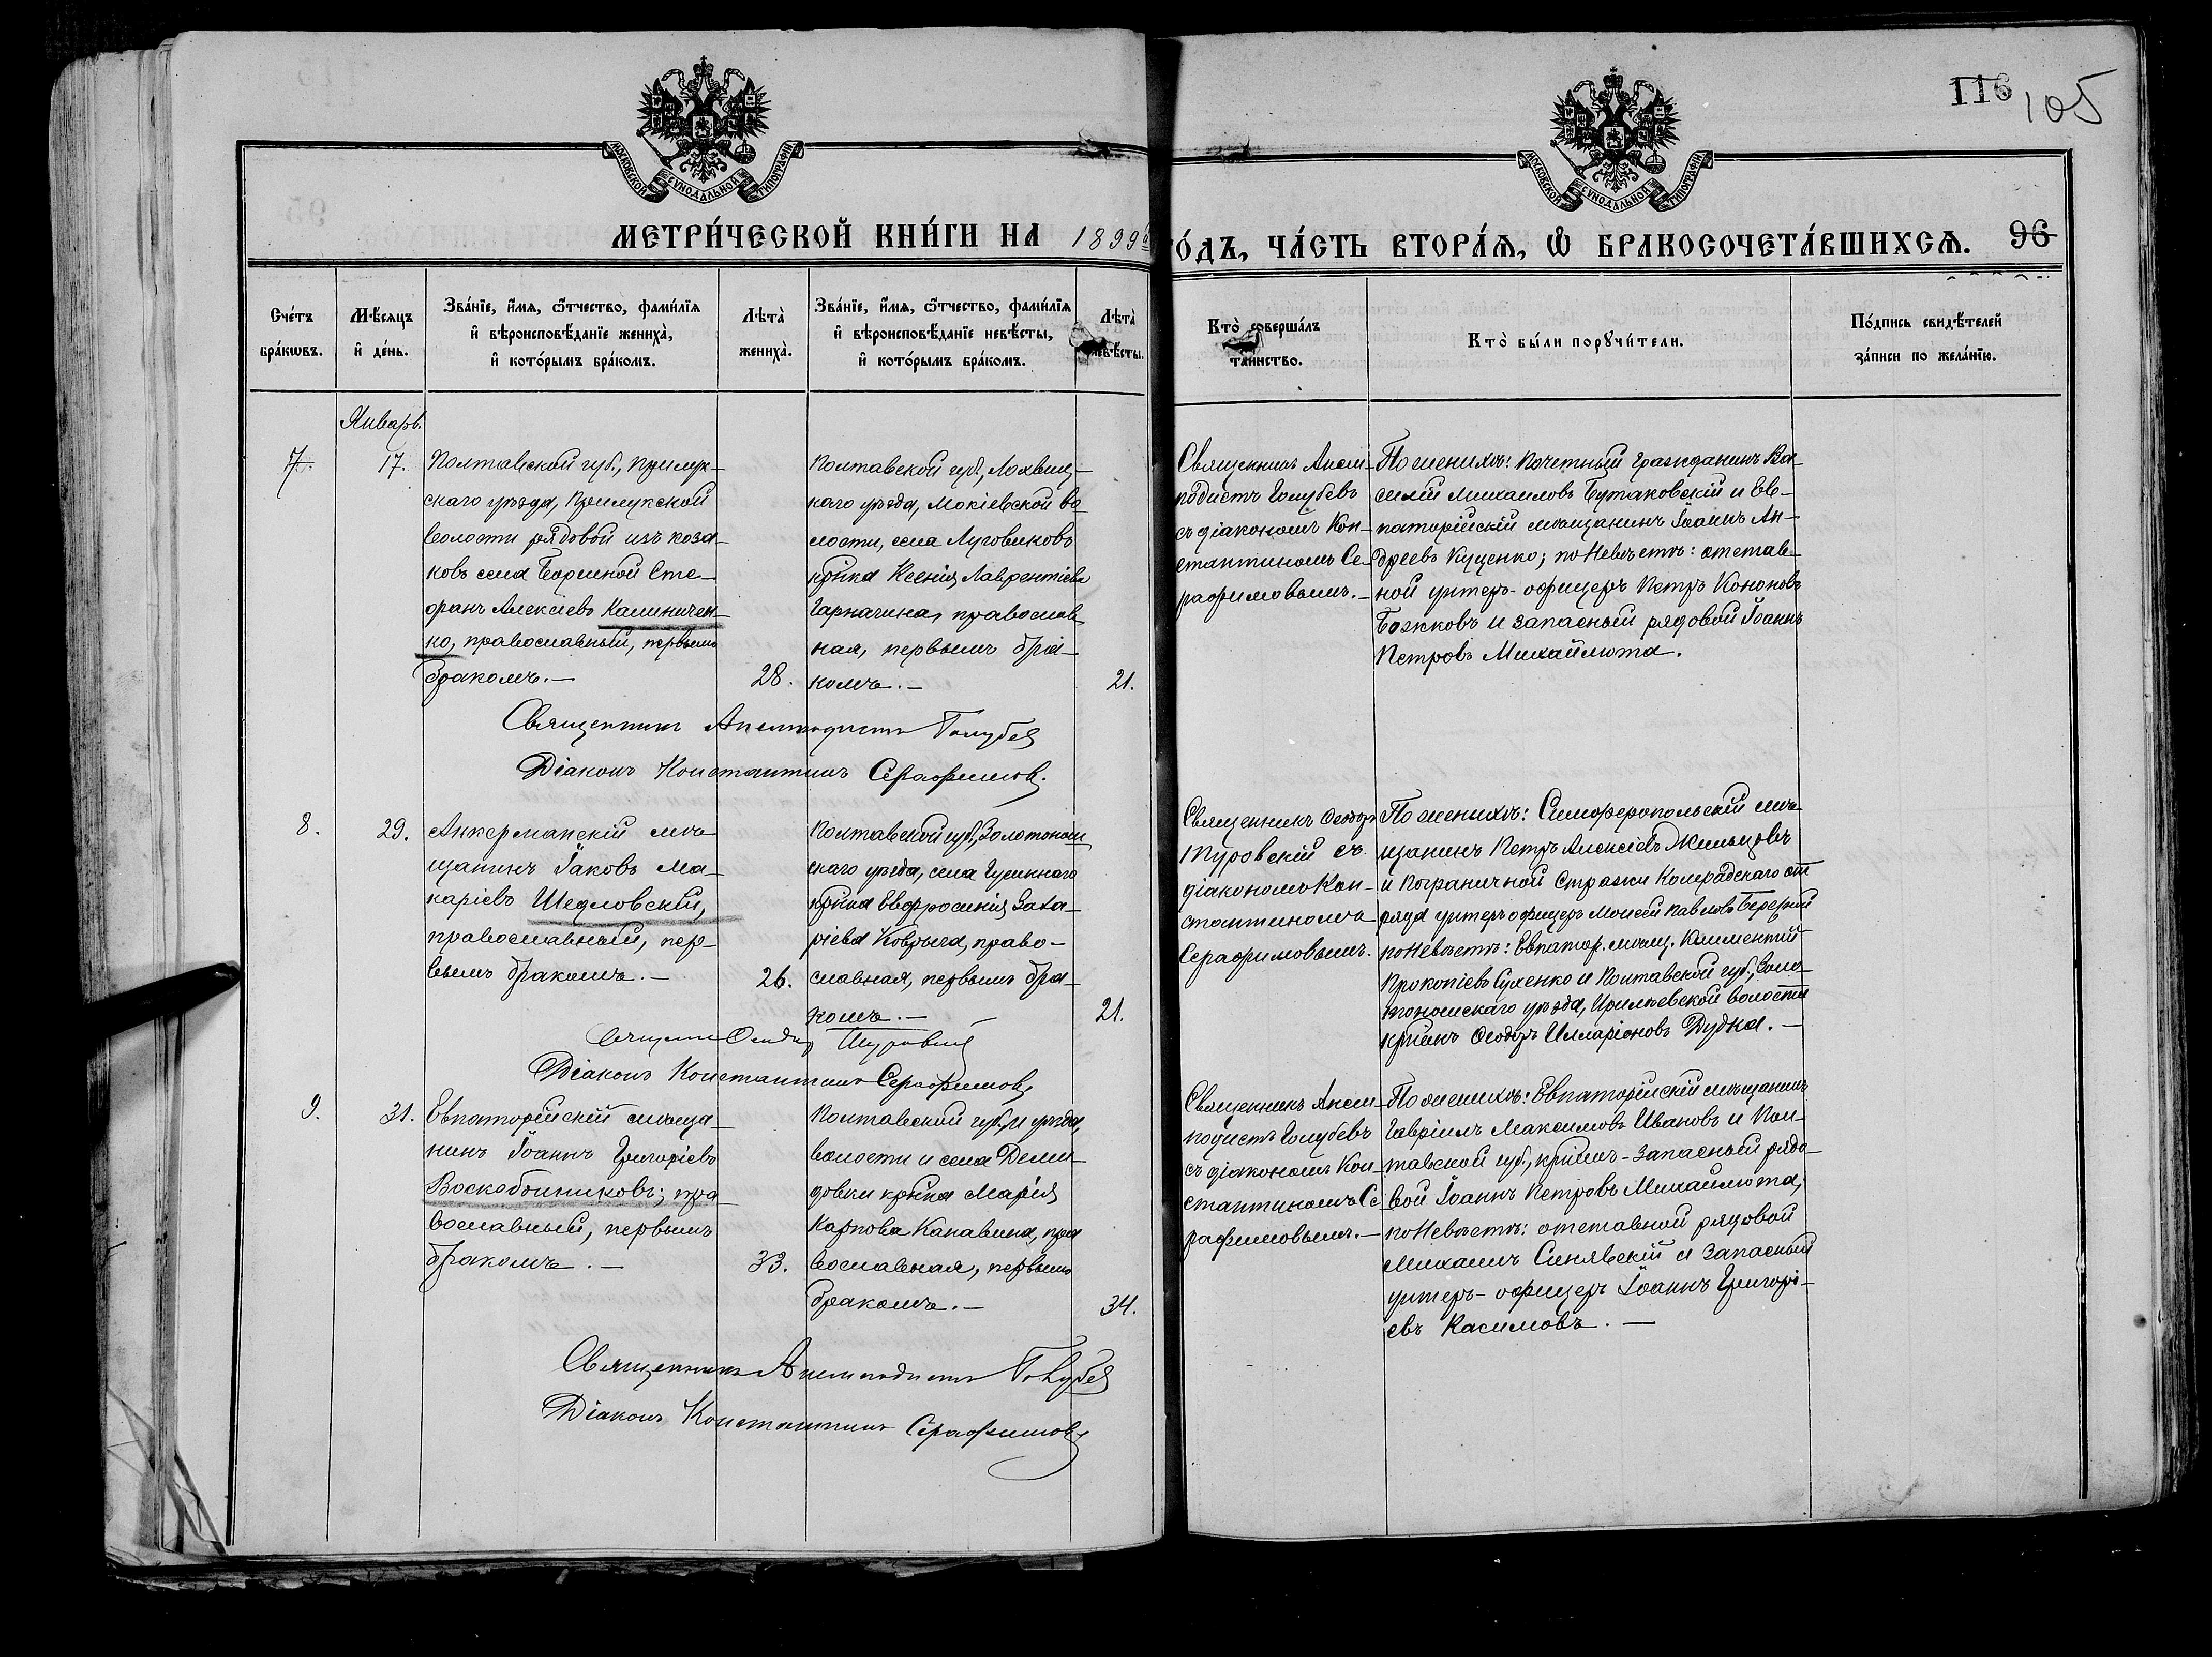 116
105
МОСКОВСКОЙ СѴНОДАЛЬНОЙ ТИПОГРАФІИ
МОСКОВСКОЙ СѴНОДАЛЬНОЙ ТИПОГРАФІИ
МЕТРИ́ЧЕСКОЙ КНИ́ГИ НА 1899й
ГО́ДЪ, ЧА́СТЬ ВТОРА́Ѧ, Ѿ БРАКОСОЧЕТА́ВШИХСѦ. 96
Сче́тъ
бра́кѡвъ.
Мѣ́сяцъ
и҆ де́нь.
Зва́нїе, и҆́мѧ, ѻ҆́тчество, фами́лїѧ
и҆ вѣроисповѣ́данїе жениха̀,
и҆ кото́рымъ бра́комъ.
Лѣта̀
жениха̀.
Зва́нїе, и҆́мѧ, ѻ҆́тчество, фами́лїѧ
и҆ вѣроисповѣ́данїе невѣ́сты,
и҆ кото́рымъ бра́комъ.
Лѣта̀
невѣ́сты.
Кто̀ соверша́лъ
таинство.
Кто̀ бы́ли порꙋчи́тели.
По́дпись свидѣ́телей
за́писи по жела́нїю.
Январь.
7.
17.
Полтавской губ., Прилук-
скаго уѣзда, Прилукской
волости рядовой изъ коза-
ковъ села Боршной Сте-
фанъ Алексіевъ Калиничен-
ко, православный, первымъ
бракомъ.—
28.
Полтавской губ., Лохвиц-
каго уѣзда, Мокіевской во-
лости, села Луговиковъ
кр-нка Ксенія Лаврентіева
Гарначина, православ-
ная, первымъ бра-
комъ.—
21.
Священникъ Анем-
подистъ Голубевъ
съ діакономъ Кон-
стантиномъ Се-
рафимовымъ.—
По женихѣ: Почетный гражданинъ Ва-
силій Михаиловъ Бутаковскій и Ев-
паторійскій мѣщанинъ Іоаннъ Ан-
дреевъ Куценко; по Невѣстѣ: отстав-
ной унтеръ-офицеръ Петръ Кононовъ
Божковъ и запасный рядовой Іоаннъ
Петровъ Михайлюта.
Священникъ Анемподистъ Голубев
Діаконъ Константинъ Серафимов.
8.
29.
Аккерманскій мѣ-
щанинъ Іаковъ Ма-
каріевъ Шедловскій,
православный, пер-
вымъ бракомъ.—
26.
Полтавской губ., Золотонош-
скаго уѣзда, села Гусиннаго
кр-нка Евфросинія Заха-
ріева Коврыга, право-
славная, первымъ бра-
комъ.—
21.
Священникъ Ѳеодоръ
Туровскій съ
діакономъ Кон-
стантиномъ
Серафимовымъ.
По женихѣ: Симферопольскій мѣ-
щанинъ Петръ Алексіевъ Жильцовъ
и Пограничной Стражи Комрадскаго от-
ряда унтеръ офицеръ Моисей Павловъ Бережной
по Невѣстѣ: Евпатор. мѣщ. Климентій
Прокопіевъ Сухенко и Полтавской губ., Золо-
тоношскаго уѣзда, Ирклѣевской волости
кр-нинъ Ѳеодоръ Илларіоновъ Дудка.—
Священникъ Ѳеодоръ Туровскій
Діаконъ Константинъ Серафимовъ
9.
31.
Евпаторійскій мѣща-
нинъ Іоаннъ Григоріевъ
Воскобойниковъ; пра-
вославный, первымъ
бракомъ.—
33.
Полтавской губ., и уѣзда,
волости и села Деми-
довки кр-нка Марія
Карпова Канавина, пра-
вославная, первымъ
бракомъ.—
34.
Священникъ Анем-
подистъ Голубевъ
съ діакономъ Кон-
стантиномъ Се-
рафимовымъ.—
По женихѣ: Евпаторійскій мѣщанинъ
Гавріилъ Максимовъ Ивановъ и Пол-
тавской губ., кр-нинъ-запасный рядо-
вой Іоаннъ Петровъ Михайлюта;
по Невѣстѣ: отставной рядовой
Михаилъ Синявскій и Запасный
унтеръ-офицеръ Іоаннъ Григорі-
евъ Касимовъ.—
Священникъ Анемподистъ Голубев
Діаконъ Константинъ Серафимовъ